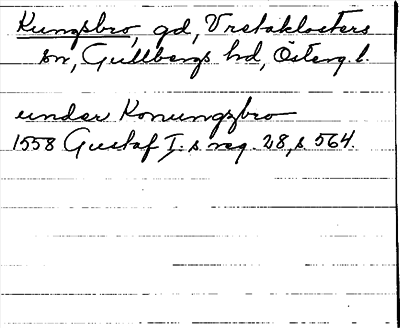 Kungsbro, gd, Vretaklosters
sn, Gullbergs hd, Österg. l.
under Konungzbro
1558 Gustaf I.s reg. 28, s 564.